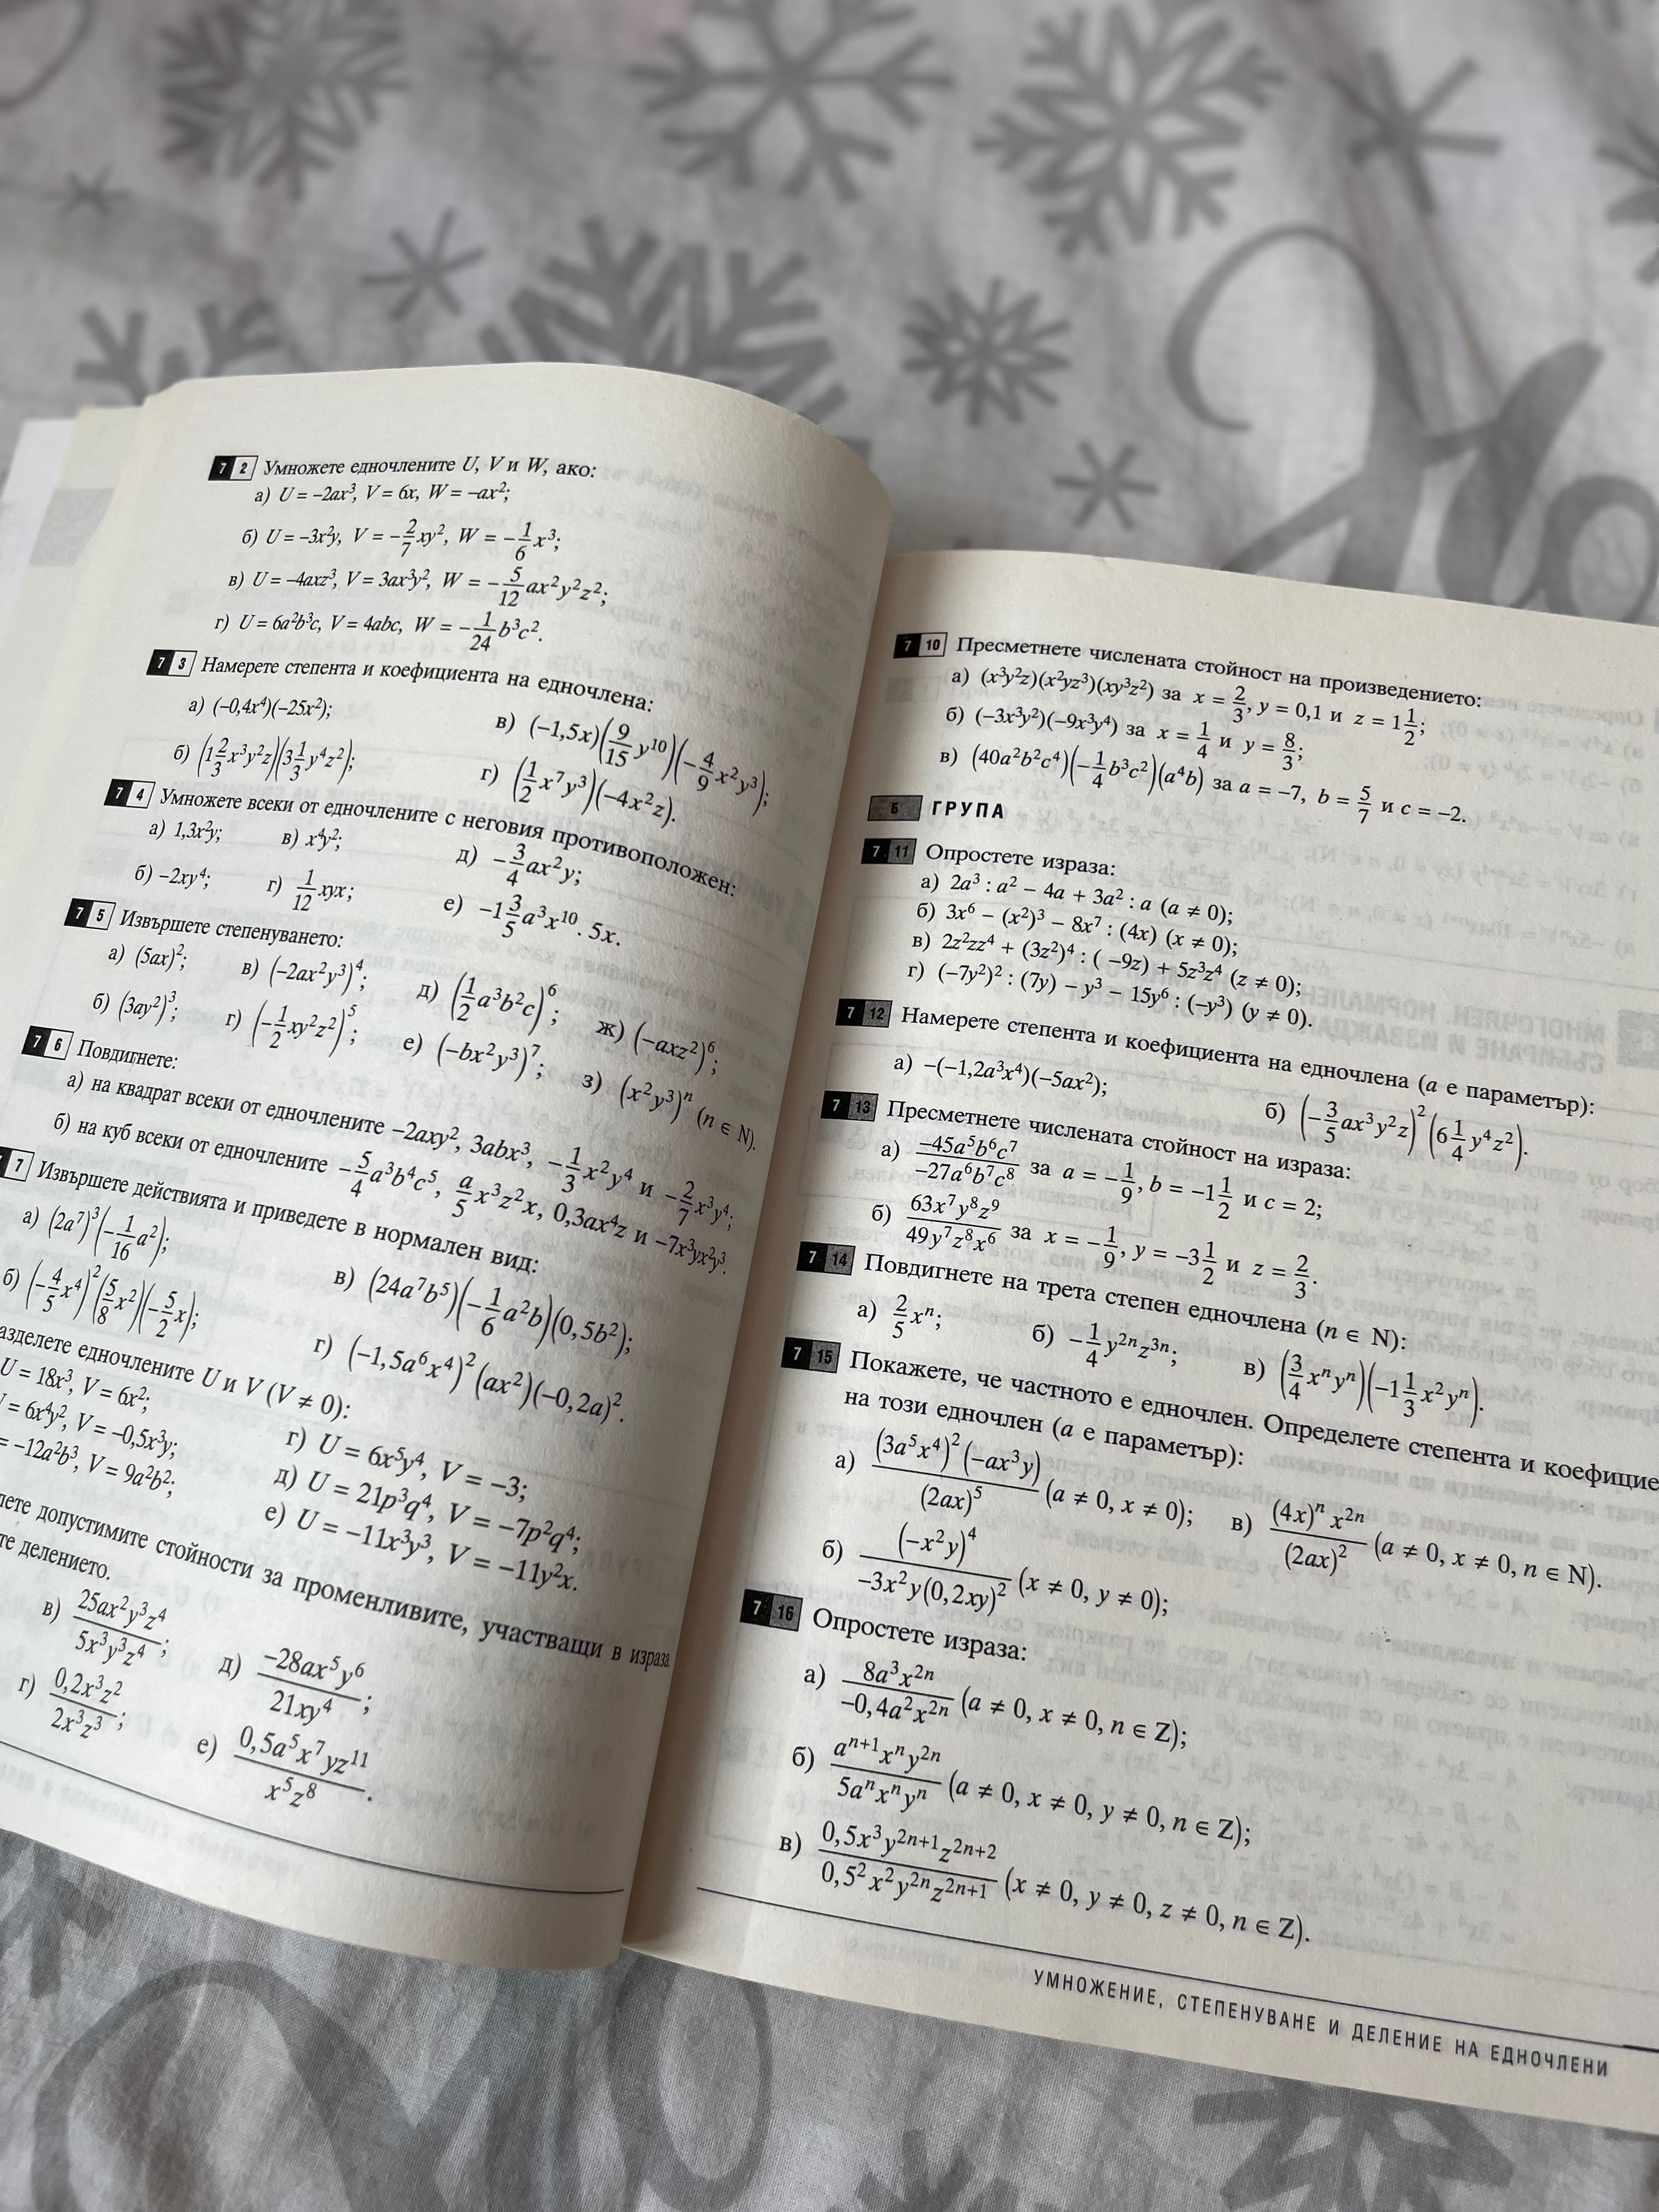 7 2 Умножете едночлените U, V и W, ако:
а) U = –2ax³, V = 6x, W = –ax²;
б) U = –3x²y, V = –2/7 xy², W = –1/6 x³;
в) U = –4axz³, V = 3ax³y², W = –5/12 ax²y²z²;
г) U = 6a²b³c, V = 4abc, W = –1/24 b³c².
7 3 Намерете степента и коефициента на едночлена:
а) (–0,4x⁴)(–25x²);
в) (–1,5x)(9/15 y¹⁰)(–4/9 x²y³);
б) (1 2/3 x³y²z)(3 1/3 y⁴z²);
г) (1/2 x⁷y³)(–4x²z).
7 4 Умножете всеки от едночлените с неговия противоположен:
а) 1,3x²y; в) x⁴y²; д) –3/4 ax²y;
б) –2xy⁴; г) 1/12 xyx; е) –1 3/5 a³x¹⁰. 5x.
7 5 Извършете степенуването:
а) (5ax)²; в) (–2ax²y³)⁴; д) (1/2 a³b²c)⁶; ж) (–axz²)⁶;
б) (3ay²)³; г) (–1/2 xy²z²)⁵; е) (–bx²y³)⁷; з) (x²y³)ⁿ (n ∈ N).
7 6 Повдигнете:
а) на квадрат всеки от едночлените –2axy², 3abx³, –1/3 x²y⁴ и –2/7 x³y⁴;
б) на куб всеки от едночлените –5/4 a³b⁴c⁵, a/5 x³z²x, 0,3ax⁴z и –7x³yx²y³.
7 Извършете действията и приведете в нормален вид:
а) (2a⁷)³(–1/16 a²);
в) (24a⁷b⁵)(–1/6 a²b)(0,5b²);
б) (–4/5 x⁴)²(5/8 x²)(–5/2 x);
г) (–1,5a⁶x⁴)²(ax²)(–0,2a)².
едночлените U и V (V ≠ 0):
U = 18x³, V = 6x²;
г) U = 6x⁵y⁴, V = –3;
= 6x⁴y², V = –0,5x³y;
д) U = 21p³q⁴, V = –7p²q⁴;
= –12a²b³, V = 9a²b²;
е) U = –11x³y³, V = –11y²x.
допустимите стойности за променливите, участващи в израза
делението.
в) 25ax²y³z⁴ / 5x³y³z⁴;
д) –28ax⁵y⁶ / 21xy⁴;
г) 0,2x³z² / 2x³z³;
е) 0,5a⁵x⁷yz¹¹ / x⁵z⁸.
7 10 Пресметнете числената стойност на произведението:
а) (x³y²z)(x²yz³)(xy³z²) за x = 2/3, y = 0,1 и z = 1 1/2;
б) (–3x³y²)(–9x³y⁴) за x = 1/4 и y = 8/3;
в) (40a²b²c⁴)(–1/4 b³c²)(a⁴b) за a = –7, b = 5/7 и c = –2.
Б ГРУПА
7 11 Опростете израза:
а) 2a³ : a² – 4a + 3a² : a (a ≠ 0);
б) 3x⁶ – (x²)³ – 8x⁷ : (4x) (x ≠ 0);
в) 2z²zz⁴ + (3z²)⁴ : ( –9z) + 5z³z⁴ (z ≠ 0);
г) (–7y²)² : (7y) – y³ – 15y⁶ : (–y³) (y ≠ 0).
7 12 Намерете степента и коефициента на едночлена (a е параметър):
а) –(–1,2a³x⁴)(–5ax²);
б) (–3/5 ax³y²z)²(6 1/4 y⁴z²).
7 13 Пресметнете числената стойност на израза:
а) –45a⁵b⁶c⁷ / –27a⁶b⁷c⁸ за a = –1/9, b = –1 1/2 и c = 2;
б) 63x⁷y⁸z⁹ / 49y⁷z⁸x⁶ за x = –1/9, y = –3 1/2 и z = 2/3.
7 14 Повдигнете на трета степен едночлена (n ∈ N):
а) 2/5 xⁿ; б) –1/4 y²ⁿz³ⁿ; в) (3/4 xⁿyⁿ)(–1 1/3 x²yⁿ).
7 15 Покажете, че частното е едночлен. Определете степента и
на този едночлен (a е параметър):
а) (3a⁵x⁴)²(–ax³y) / (2ax)⁵ (a ≠ 0, x ≠ 0); в) (4x)ⁿ x²ⁿ / (2ax)² (a ≠ 0, x ≠ 0, n ∈ N).
б) (–x²y)⁴ / –3x²y(0,2xy)² (x ≠ 0, y ≠ 0);
7 16 Опростете израза:
а) 8a³x²ⁿ / –0,4a²x²ⁿ (a ≠ 0, x ≠ 0, n ∈ Z);
б) aⁿ⁺¹xⁿy²ⁿ / 5aⁿxⁿyⁿ (a ≠ 0, x ≠ 0, y ≠ 0, n ∈ Z);
в) 0,5x³y²ⁿ⁺¹z²ⁿ⁺² / 0,5²x²y²ⁿz²ⁿ⁺¹ (x ≠ 0, y ≠ 0, z ≠ 0, n ∈ Z).
УМНОЖЕНИЕ, СТЕПЕНУВАНЕ И ДЕЛЕНИЕ НА ЕДНОЧЛЕНИ